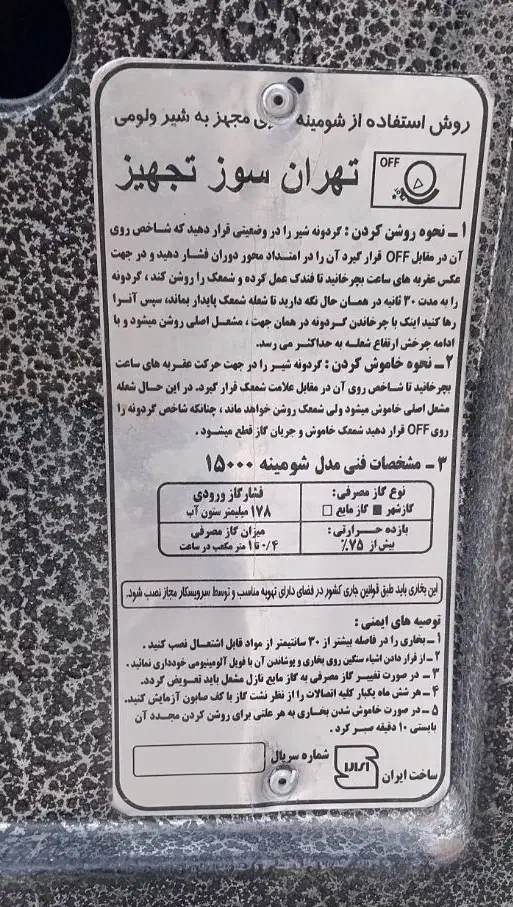 روش استفاده از شومینه گازی مجهز به شیر ولومی
OFF
تهران سوز تجهیز
۱ - نحوه روشن کردن : گردونه شیر را در وضعیتی قرار دهید که شاخص روی
آن در مقابل OFF قرار گیرد آن را در امتداد محور دوران فشار دهید و در جهت
عکس عقربه های ساعت بچرخانید تا فندک عمل کرده و شمعک را روشن کند ، گردونه
را به مدت ۳۰ ثانیه در همان حال نگه دارید تا شعله شمعک پایدار بماند، سپس آنرا
رها کنید اینک با چرخاندن گردونه در همان جهت ، مشعل اصلی روشن میشود و با
ادامه چرخش ارتفاع شعله به حداکثر می رسد.
۲ - نحوه خاموش کردن : گردونه شیر را در جهت حرکت عقربه های ساعت
بچرخانید تا شاخص روی آن در مقابل علامت شمعک قرار گیرد. در این حال شعله
مشعل اصلی خاموش میشود ولی شمعک روشن خواهد ماند ، چنانکه شاخص گردونه را
روی OFF قرار دهید شمعک خاموش و جریان گاز قطع میشود .
۳ - مشخصات فنی مدل شومینه ۱۵۰۰۰
نوع گاز مصرفی :
گازشهر ■ گاز مایع □
فشارگاز ورودی
۱۷۸ میلیمتر ستون آب
بازده حرارتی :
بیش از ۷۵٪
میزان گاز مصرفی
۰/۴ تا ۱ متر مکعب در ساعت
این بخاری باید طبق قوانین جاری کشور در فضای دارای تهویه مناسب و توسط سرویسکار مجاز نصب شود.
توصیه های ایمنی :
۱ - بخاری را در فاصله بیشتر از ۳۰ سانتیمتر از مواد قابل اشتعال نصب کنید .
۲ - از قرار دادن اشیاء سنگین روی بخاری و پوشاندن آن با فویل آلومینیومی خودداری نمائید .
۳ - در صورت تغییر گاز مصرفی به گاز مایع نازل مشعل باید تعویض گردد.
۴ - هر شش ماه یکبار کلیه اتصالات را از نظر نشت گاز با کف صابون آزمایش کنید.
۵ - در صورت خاموش شدن بخاری به هر علتی برای روشن کردن مجدد آن
بایستی ۱۰ دقیقه صبر کرد .
ساخت ایران
شماره سریال